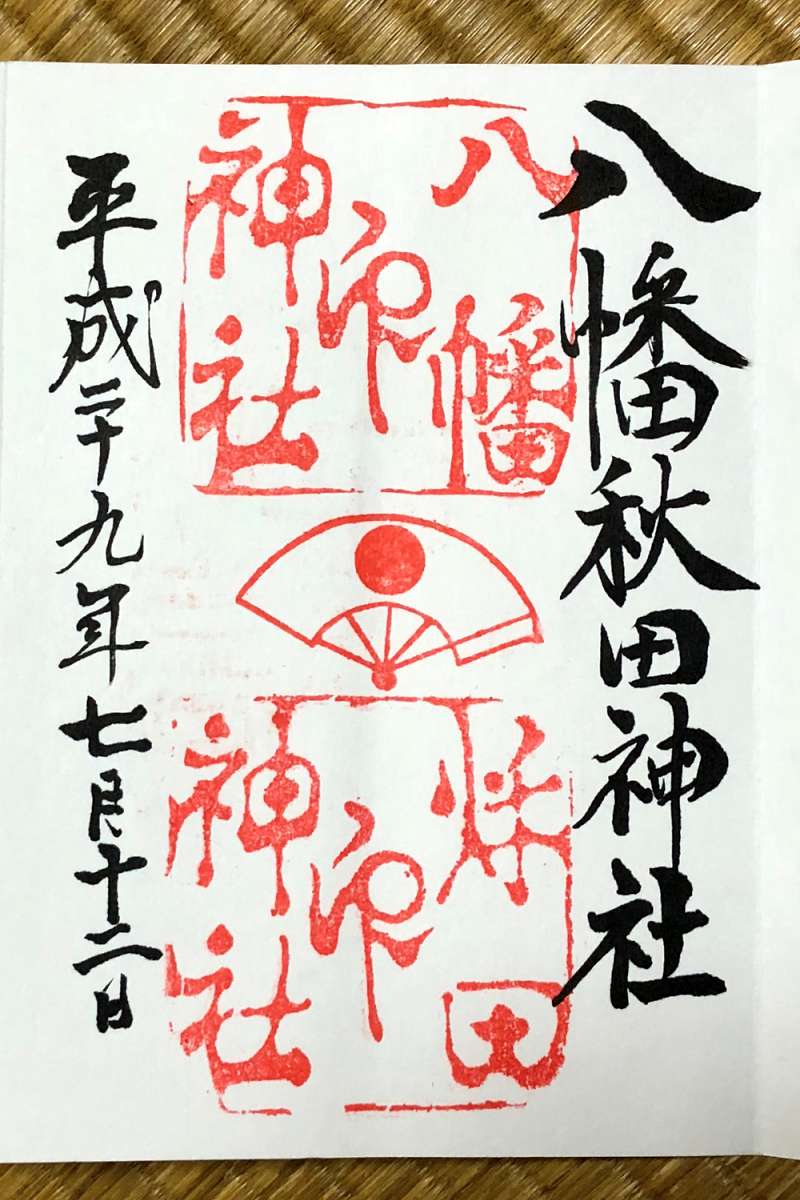 八幡秋田神社
八幡
印
神社
秌田
印
神社
平成二十九年七月十二日